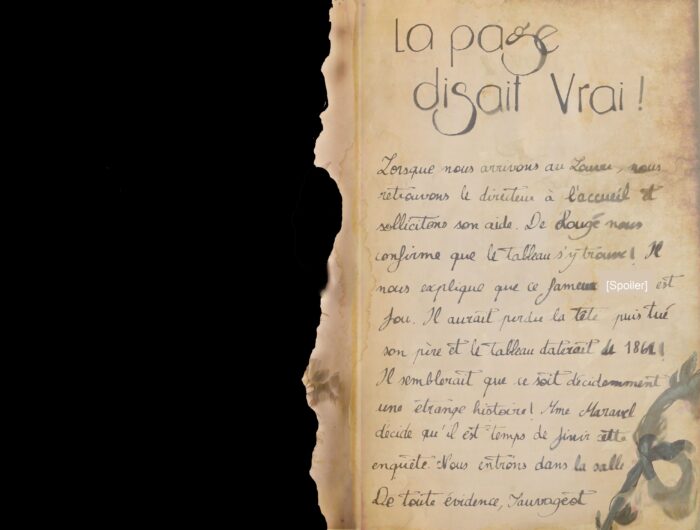 La page
disait Vrai !
Lorsque nous arrivons au Louvre, nous
retrouvons le directeur à l'accueil et
sollicitons son aide. De Rougé nous
confirme que le tableau s'y trouve! Il
nous explique que ce fameux [Spoiler] est
fou. Il aurait perdu la tête puis tué
son père et le tableau daterait de 1861!
Il semblerait que ce soit décidemment
une étrange histoire! Mme Maravel
décide qu'il est temps de finir cette
enquête. Nous entrons dans la salle
De toute évidence, Sauvageot